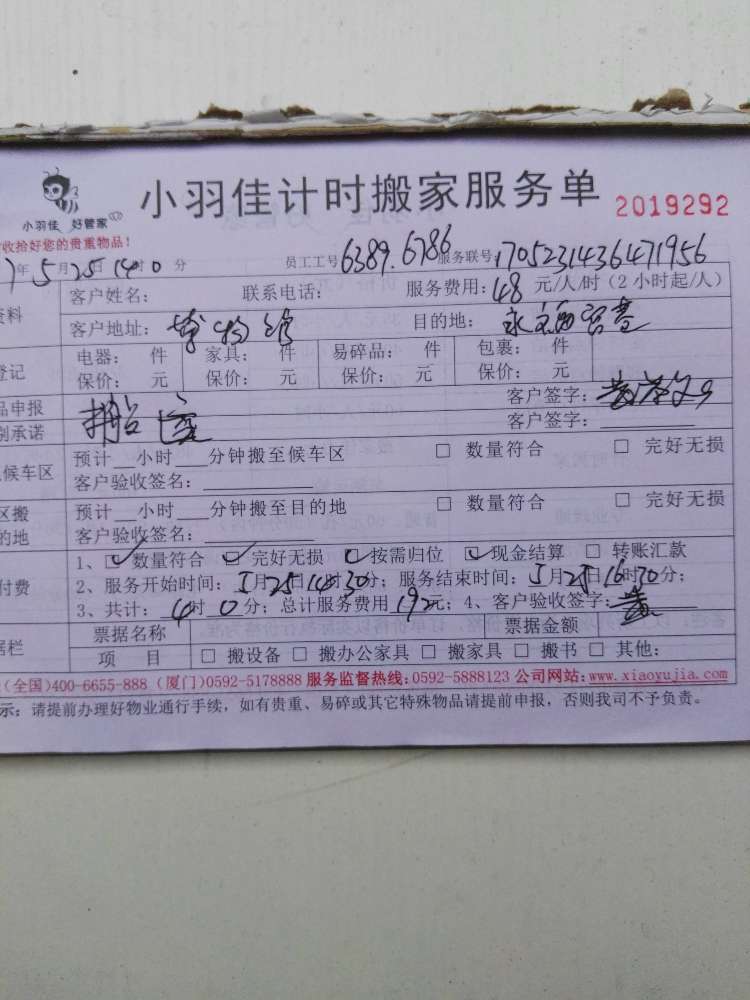 小羽佳 好管家
小羽佳计时搬家服务单 2019292
收拾好您的贵重物品!
7年5月25日14时0分 员工工号6389.6786 服务联号:1705231436471956
资料 客户姓名: 联系电话: 服务费用:48元/人/时(2小时起/人)
客户地址:博物馆 目的地:
登记 电器: 件 家具: 件 易碎品: 件 包裹: 件
保价: 元 保价: 元 保价: 元 保价: 元
品申报 客户签字:
别承诺 客户签字:
候车区 预计__小时___分钟搬至候车区 □ 数量符合 □ 完好无损
客户验收签名:
区搬 预计__小时___分钟搬至目的地 □ 数量符合 □ 完好无损
的地 客户验收签名:
1、☑数量符合 ☑完好无损 ☑按需归位 ☑现金结算 □ 转账汇款
付费 2、服务开始时间:5月25日14时30分;服务结束时间:5月25日16时30分;
3、共计:4时0分;总计服务费用192元;4、客户验收签字:黄
据栏 票据名称 票据金额
项 目 □ 搬设备 □ 搬办公家具 □ 搬家具 □ 搬书 □ 其他:
(全国)400-6655-888 (厦门)0592-5178888 服务监督热线:0592-5888123 公司网站:www.xiaoyujia.com
示:请提前办理好物业通行手续,如有贵重、易碎或其它特殊物品请提前申报,否则我司不予负责。